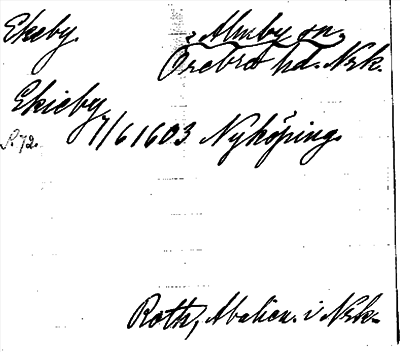 Ekeby. Almby sn,
Örebro hd. Nrk.
Ekieby
S. 72. 7/6 1603 Nyköping.
Roth, Abalien. i Nrk.